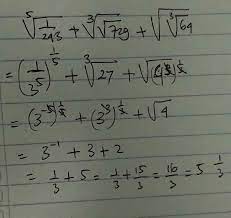 ⁵√(1/243) + ³√(√729) + √(³√64)
= (1/3⁵)^(1/5) + ³√27 +
= (3⁻⁵)^(1/5) + (3³)^(1/3) + √4
= 3⁻¹ + 3 + 2
= 1/3 + 5 = 1/3 + 15/3 = 16/3 = 5 1/3